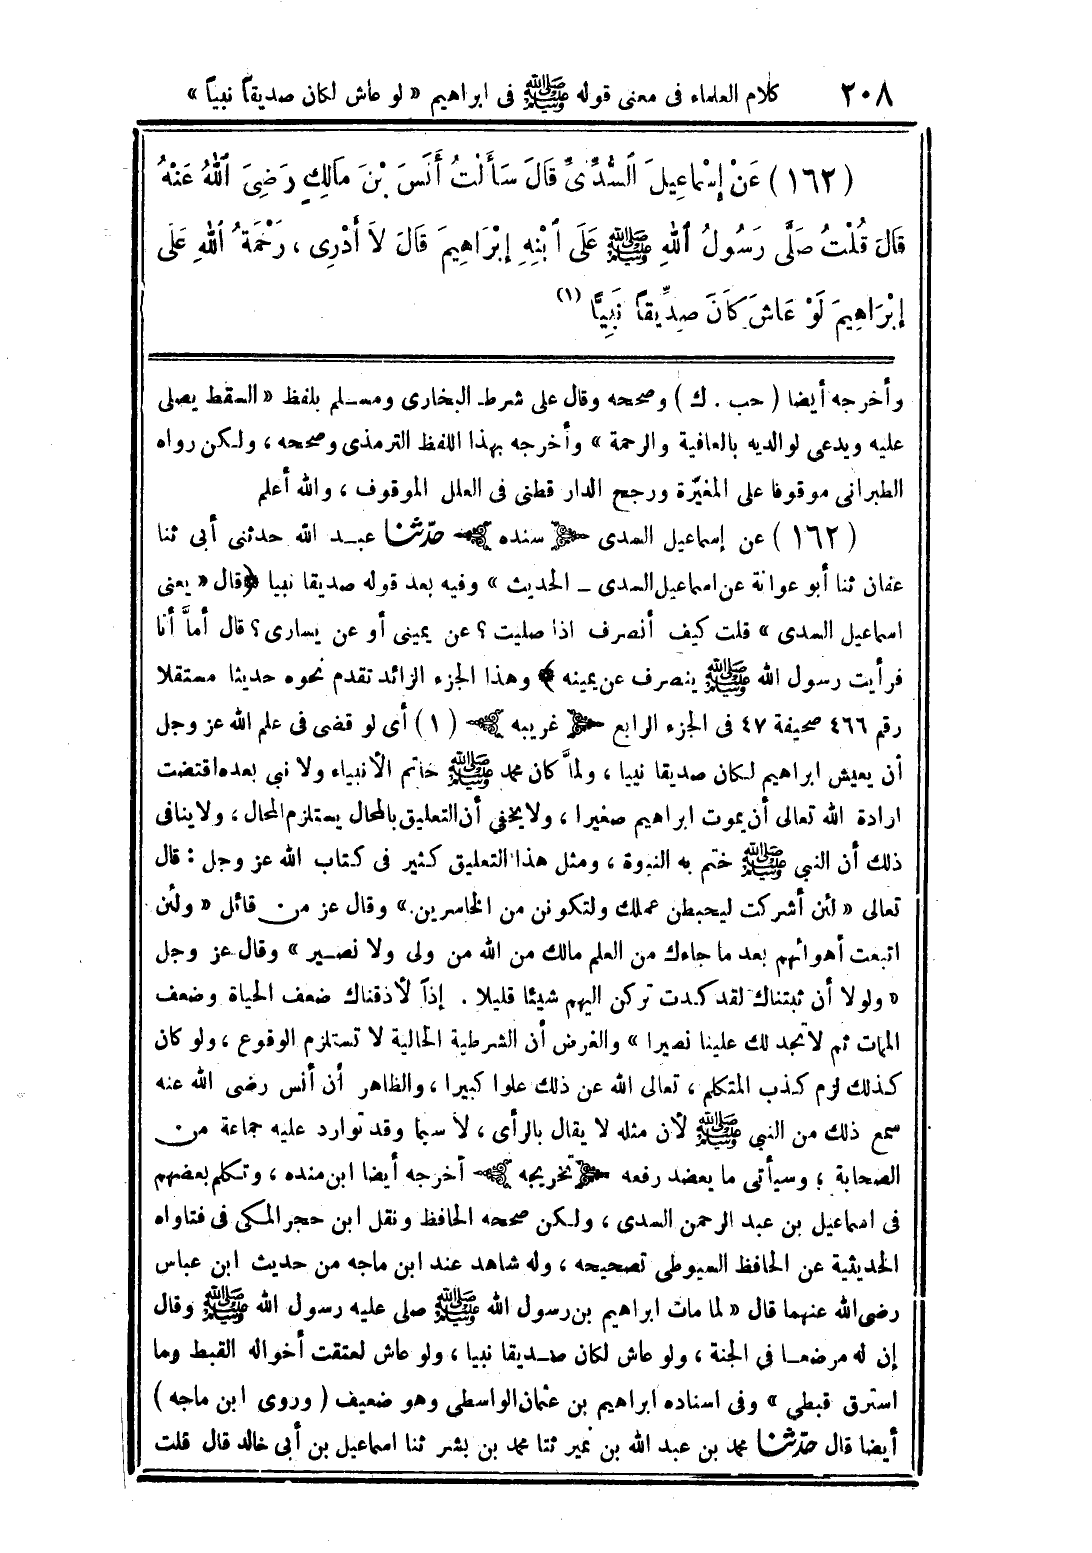 ٢٠٨ كلام العلماء فى معنى قوله ﷺ فى ابراهيم « لو عاش لكان صديقاً نبياً »
(١٦٢) عَنْ إِسْمَاعِيلَ السُّدِّىِّ قَالَ سَأَلْتُ أَنَسَ بْنَ مَالِكٍ رَضِىَ اللهُ عَنْهُ
قَالَ قُلْتُ صَلَّى رَسُولُ اللهِ ﷺ عَلَى ابْنِهِ إِبْرَاهِيمَ قَالَ لاَ أَدْرِى ، رَحْمَةُ اللهِ عَلَى
إِبْرَاهِيمَ لَوْ عَاشَ كَانَ صِدِّيقاً نَبِيًّا (١)
وأخرجه أيضا ( حب . ك ) وصححه وقال على شرط البخارى ومسلم بلفظ « السقط يصلى
عليه ويدعى لوالديه بالعافية والرحمة » وأخرجه بهذا اللفظ الترمذى وصححه ، ولكن رواه
الطبرانى موقوفا على المغيرة ورجح الدار قطنى فى العلل الموقوف ، والله أعلم
(١٦٢) عن إسماعيل السدى ﴿ سنده ﴾ حدّثنا عبد الله حدثنى أبى ثنا
عفان ثنا أبو عوانة عن اسماعيل السدى ـ الحديث » وفيه بعد قوله صديقا نبيا ﴿ قال « يعنى
اسماعيل السدى » قلت كيف أنصرف اذا صليت ؟ عن يمينى أو عن يسارى ؟ قال أمَّا أنا
فرأيت رسول الله ﷺ ينصرف عن يمينه ﴾ وهذا الجزء الزائد تقدم نحوه حديثا مستقلا
رقم ٤٦٦ صحيفة ٤٧ فى الجزء الرابع ﴿ غريبه ﴾ (١) أى لو قضى فى علم الله عز وجل
أن يعيش ابراهيم لكان صديقا نبيا ، ولمَّا كان محمد ﷺ خاتم الأنبياء ولا نبى بعده اقتضت
ارادة الله تعالى أن يموت ابراهيم صغيرا ، ولا يخفى أن التعليق بالمحال يستلزم المحال ، ولا ينافى
ذلك أن النبي ﷺ ختم به النبوة ، ومثل هذا التعليق كثير فى كتاب الله عز وجل : قال
تعالى « لئن أشركت ليحبطن عملك ولتكونن من الخاسرين » وقال عز من قائل « ولئن
اتبعت أهوائهم بعد ما جاءك من العلم مالك من الله من ولى ولا نصير » وقال عز وجل
« ولولا أن ثبتناك لقد كدت تركن اليهم شيئا قليلا . إذاً لأذقناك ضعف الحياة وضعف
الممات ثم لا تجد لك علينا نصيرا » والغرض أن الشرطية الحالية لا تستلزم الوقوع ، ولو كان
كذلك لزم كذب المتكلم ، تعالى الله عن ذلك علوا كبيرا ، والظاهر أن أنس رضى الله عنه
سمع ذلك من النبي ﷺ لأن مثله لا يقال بالرأى ، لا سيما وقد توارد عليه جماعة من
الصحابة ؛ وسيأتى ما يعضد رفعه ﴿ تخريجه ﴾ أخرجه أيضا ابن منده ، وتكلم بعضهم
فى اسماعيل بن عبد الرحمن السدى ، ولكن صححه الحافظ ونقل ابن حجر المكى فى فتاواه
الحديثية عن الحافظ السيوطى تصحيحه ، وله شاهد عند ابن ماجه من حديث ابن عباس
رضى الله عنهما قال « لما مات ابراهيم بن رسول الله ﷺ صلى عليه رسول الله ﷺ وقال
إن له مرضعا فى الجنة ، ولو عاش لكان صديقا نبيا ، ولو عاش لعتقت أخواله القبط وما
استرق قبطي » وفى اسناده ابراهيم بن عثمان الواسطى وهو ضعيف ( وروى ابن ماجه )
أيضا قال حدّثنا محمد بن عبد الله بن نمير ثنا محمد بن بشر ثنا اسماعيل بن أبى خالد قال قلت